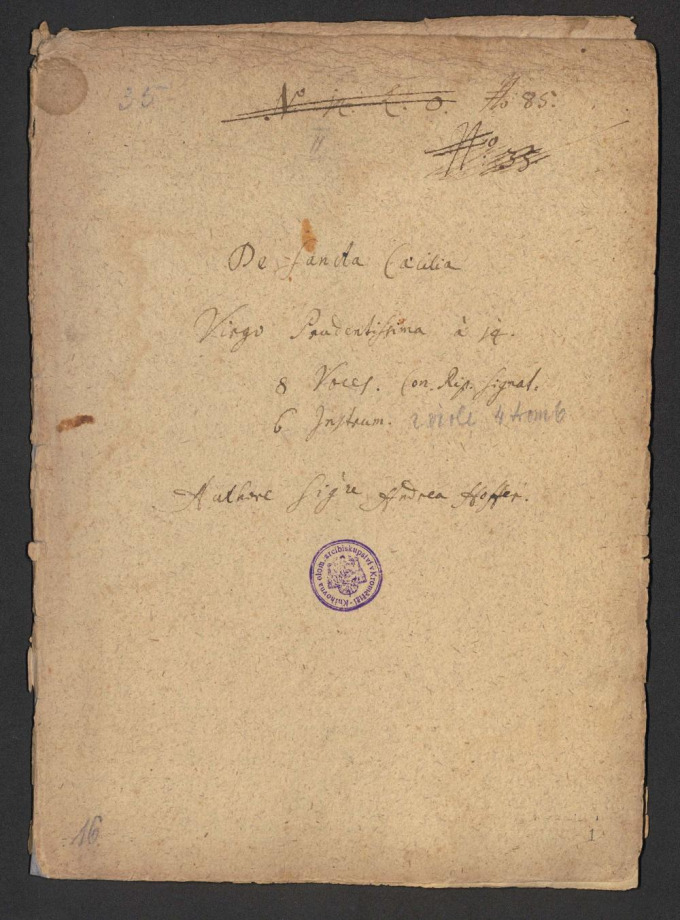 35
No 85.
II
De sancta Cæcilia
Virgo Prudentissima à 14.
8 Voces. Con. Rip. signat.
6 Instrum. 2 viole 4 tromb
Authore Sigre Andrea Hoffer.
Knihovna olom. arcibiskupství v Kroměříži
16
1